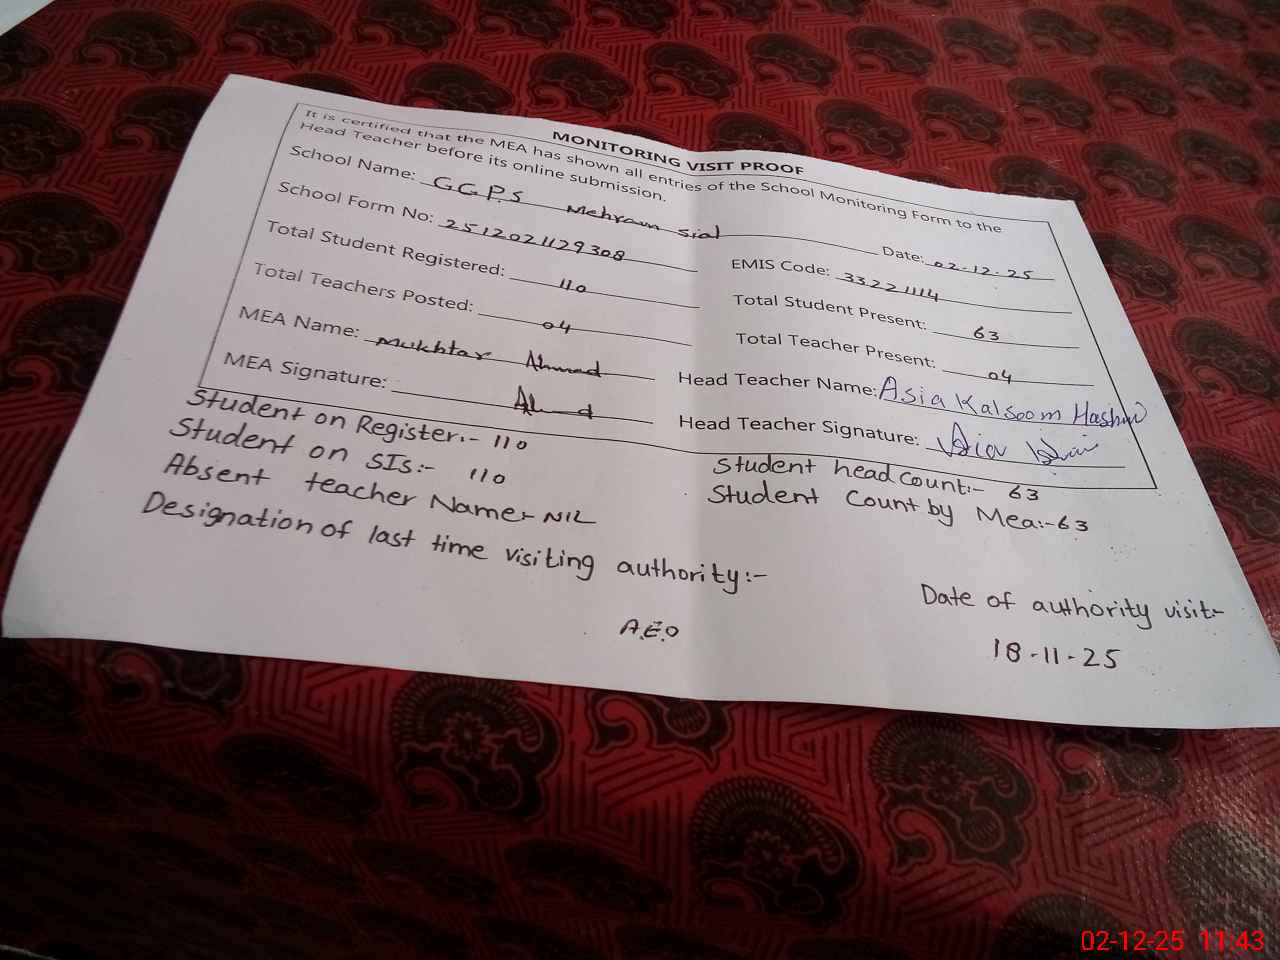 MONITORING VISIT PROOF
It is certified that the MEA has shown all entries of the School Monitoring Form to the
Head Teacher before its online submission.
School Name: GGPS Mehram sial Date: 02-12-25
School Form No: 2512021129308 EMIS Code: 33221114
Total Student Registered: 110 Total Student Present: 63
Total Teachers Posted: 04 Total Teacher Present: 04
MEA Name: Mukhtar Ahmad Head Teacher Name: Asia Kalsoom Hashmi
MEA Signature: Head Teacher Signature:
Student on Register:- 110 Student head count:- 63
Student on SIs:- 110 Student Count by Mea:- 63
Absent teacher Name:- NIL
Designation of last time visiting authority:- Date of authority visit:-
A.E.O 18-11-25
02-12-25 11:43